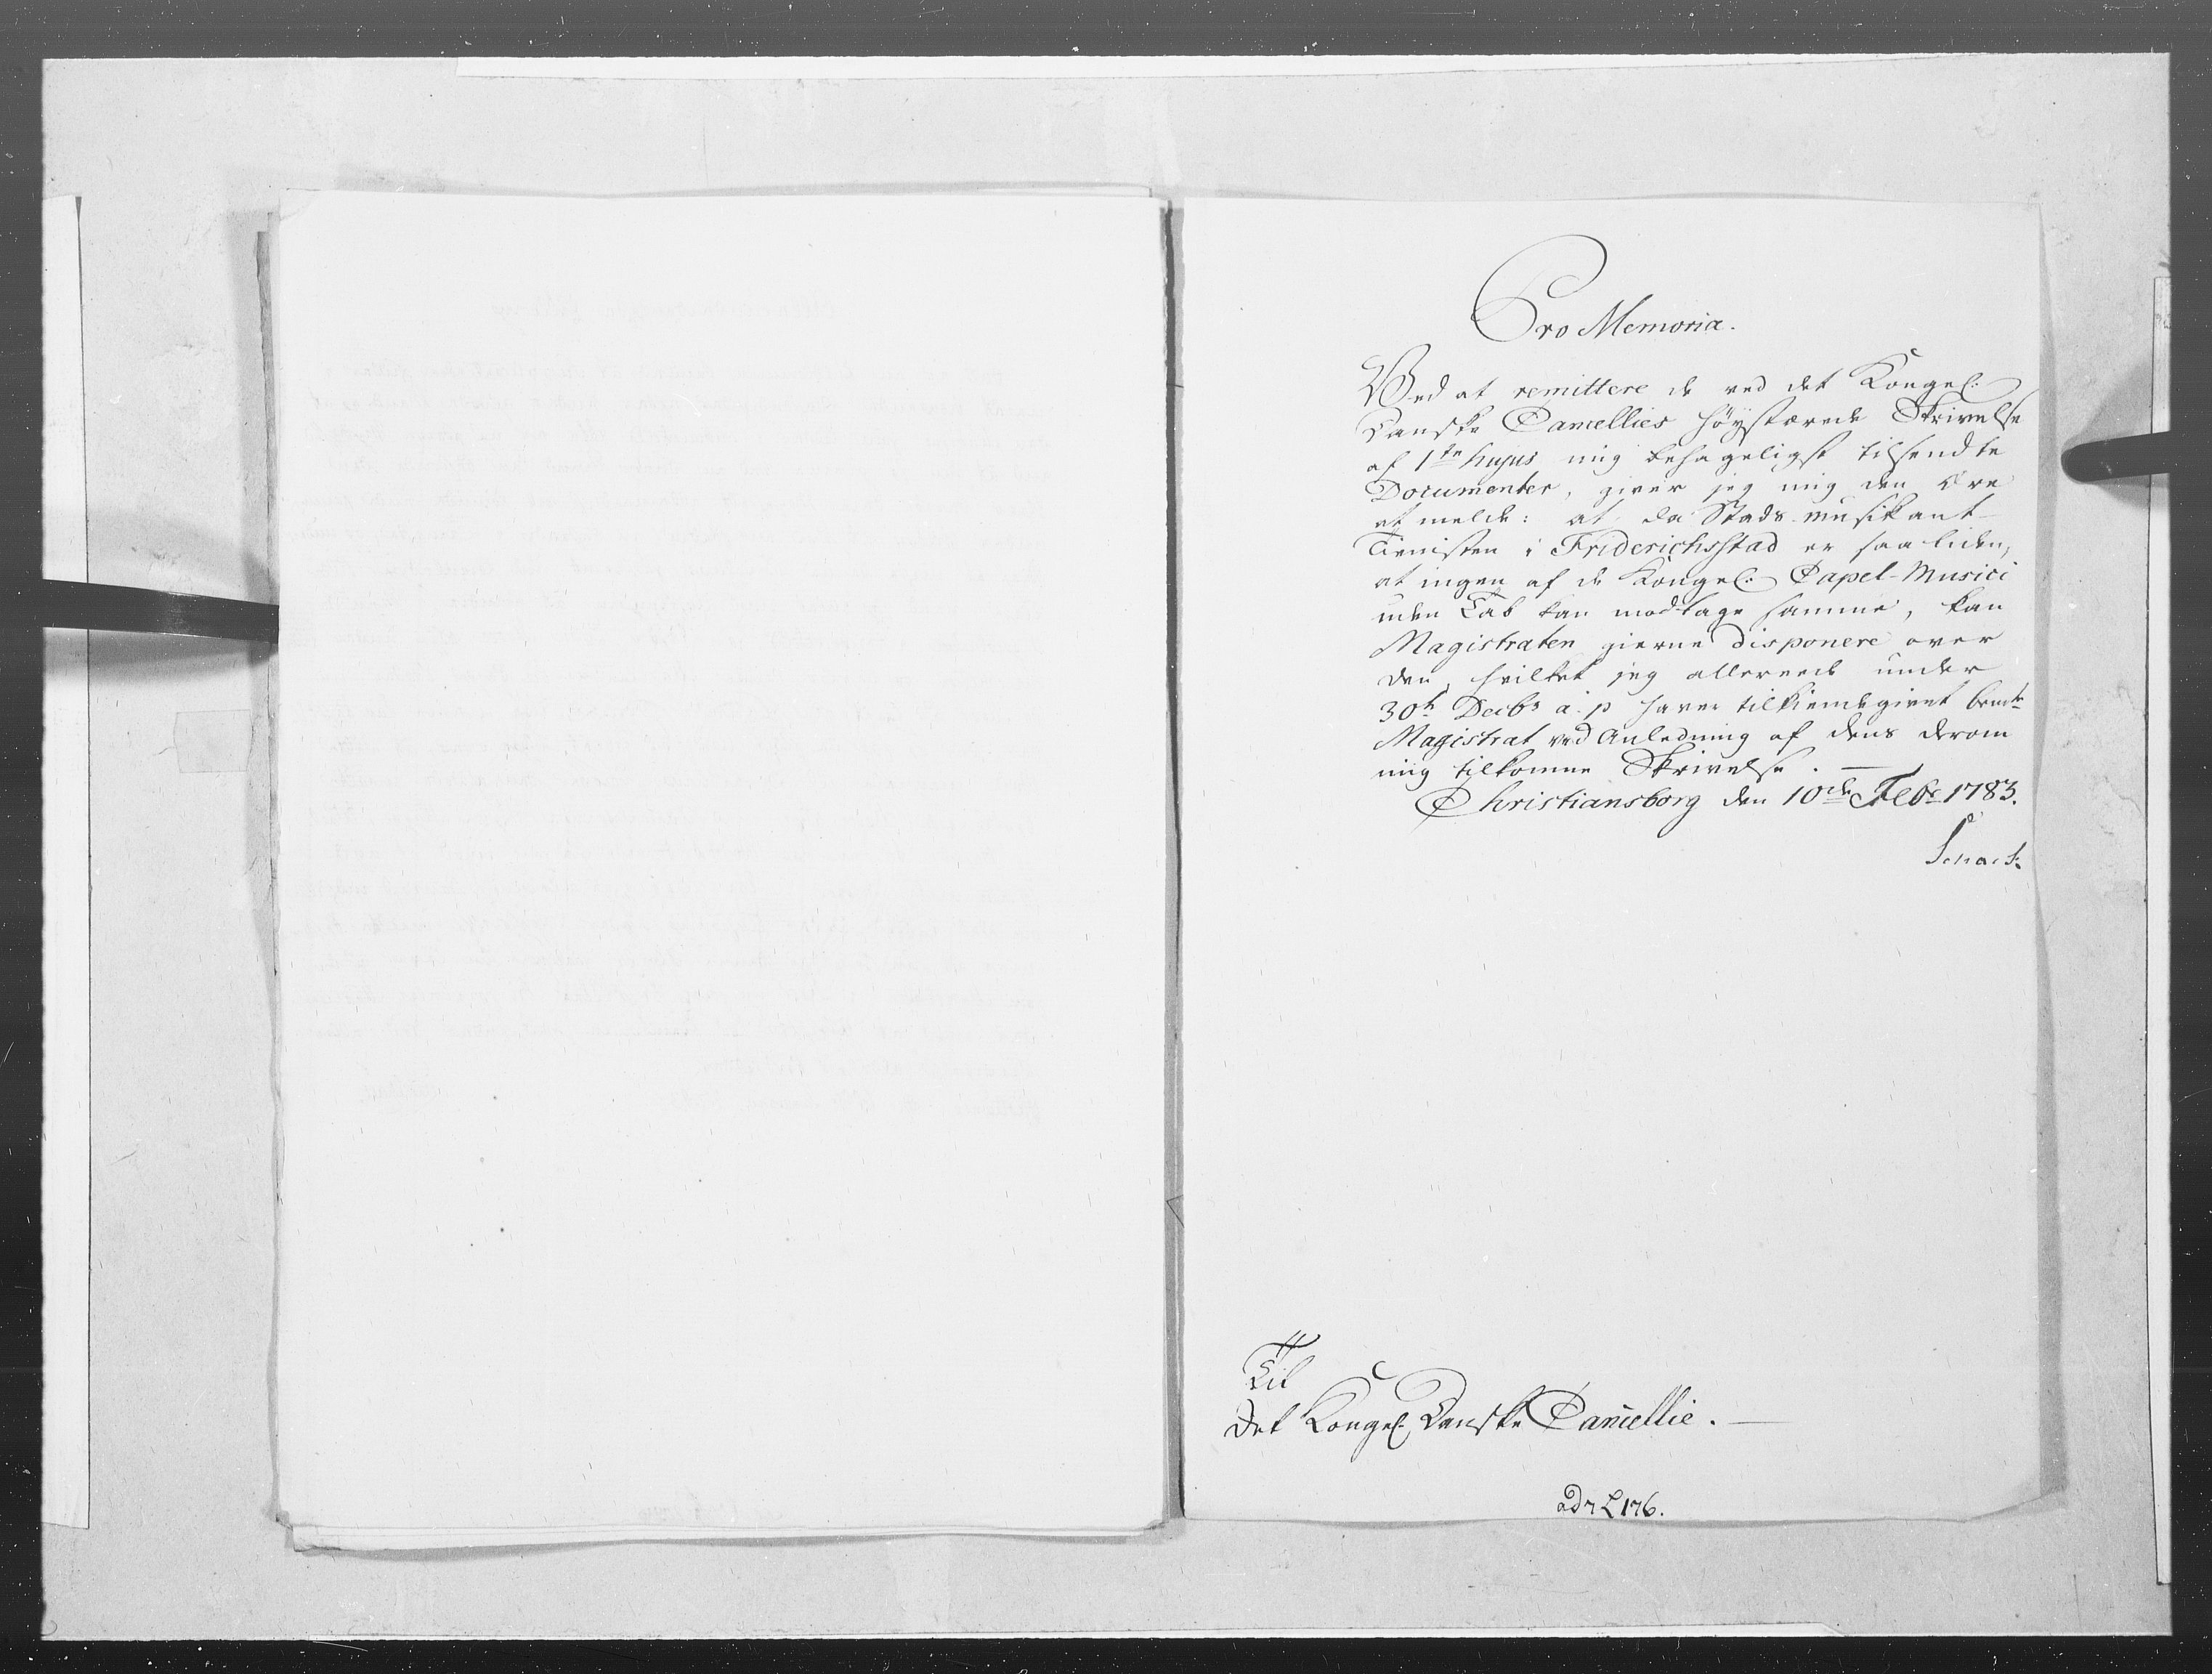 Pro Memoria.
Ved at remittere de ved det Kongel:
Danske Cancellies høystærede Skrivelse
af 1te hujus mig behageligst tilsendte
Documenter, giver jeg mig den Ære
at melde: at da Stads-musikant-
Tienisten i Friderichsstad er saa liden,
at ingen af de Kongel: Capel-Musici
uden Tab kan modtage samme, kan
Magistraten gierne disponere over
den, hvilket jeg allereede under
30te Decbr a: p haver tilkiendegivet bemte
Magistrat ved Anledning af dens derom
mig tilkomne Skrivelse. —
Christiansborg den 10de Febr 1783.
Schack.
Til
Det Kongel. Danske Cancellie. —
ad L 176.